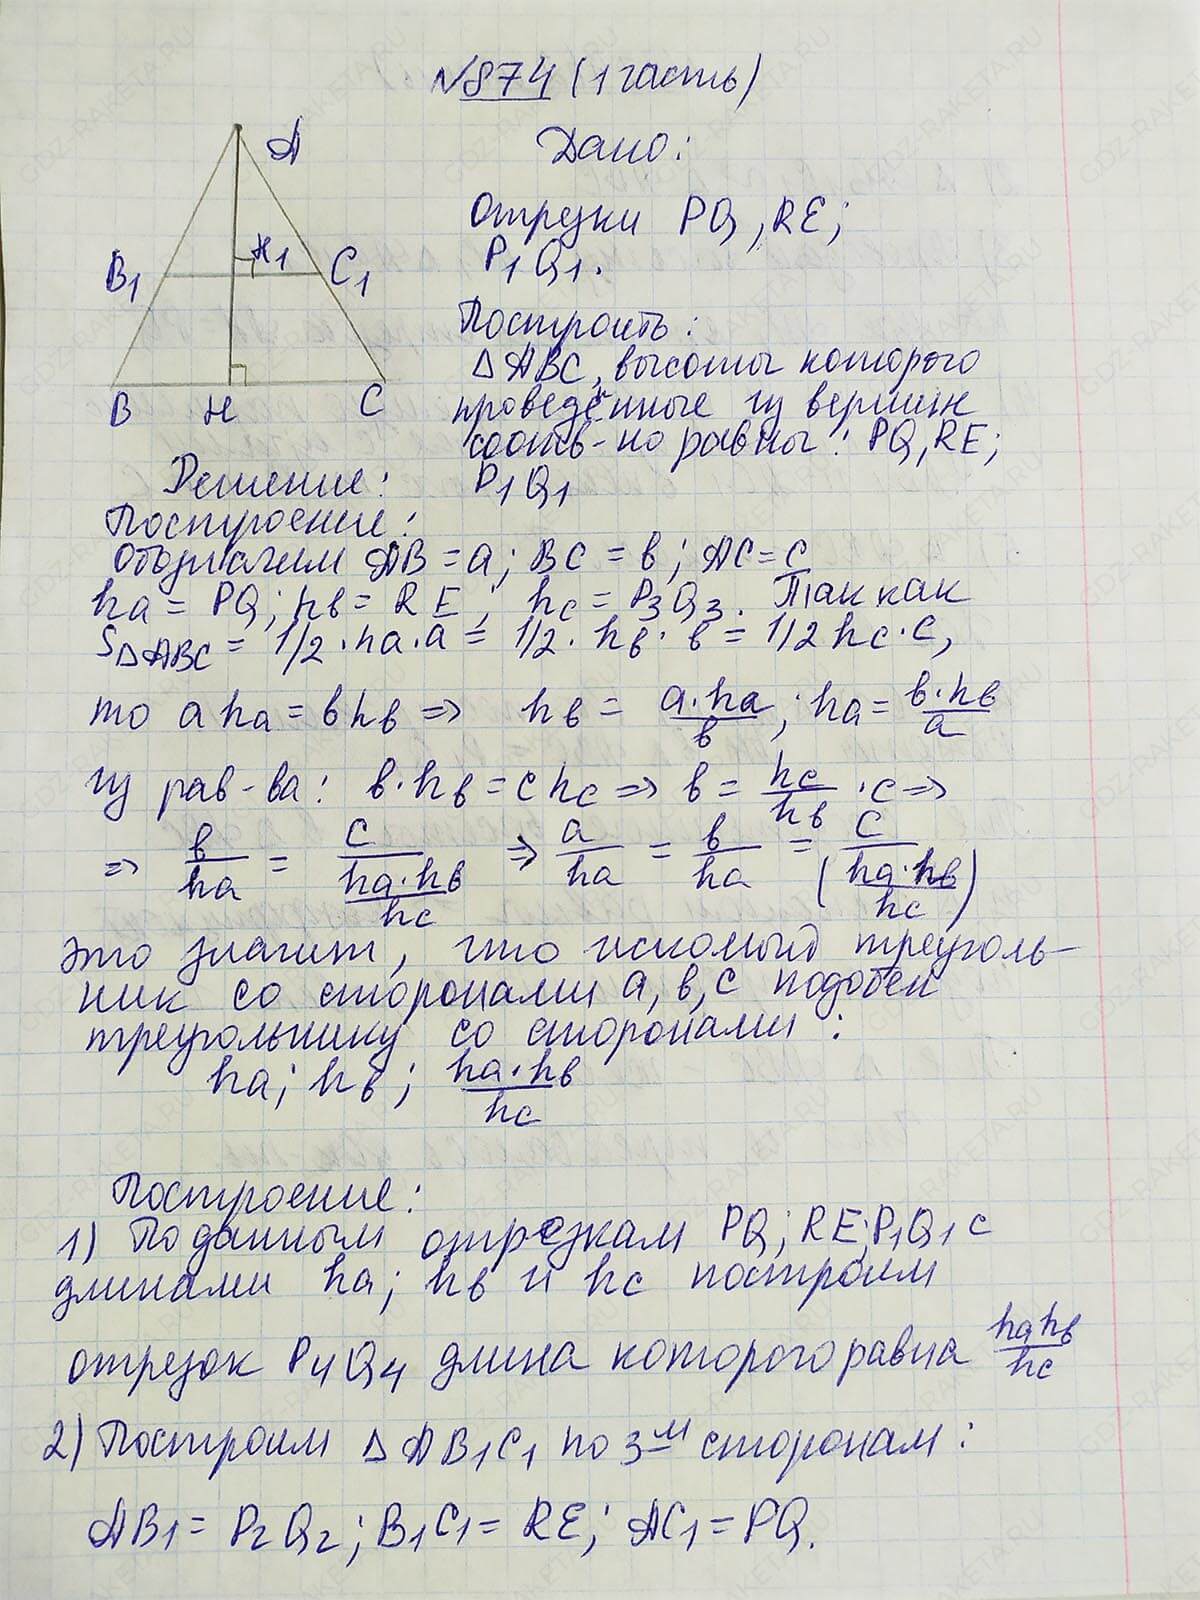 №874 (1 часть)
A
B1
H1
C1
B
H
C
Дано:
Отрезки PQ, RE;
P1Q1.
Построить:
△ABC, высоты которого
проведённые из вершин
соотв-но равны: PQ, RE;
P1Q1
Решение:
Построение:
Обозначим AB = a; BC = в; AC = c
ha = PQ; hв = RE; hc = P3Q3. Так как
S△ABC = 1/2·ha·a = 1/2·hв·в = 1/2 hc·c,
то a ha = в hв => hв = a·ha/в; ha = в·hв/a
из рав-ва: в·hв = c hc => в = hc/hв · c =>
=> в/ha = c/(ha·hв/hc) => a/ha = в/ha = c/(ha·hв/hc)
это значит, что искомый треуголь-
ник со сторонами a, в, c подобен
треугольнику со сторонами:
ha; hв; ha·hв/hc
Построение:
1) По данным отрезкам PQ; RE; P1Q1 с
длинами ha; hв и hc построим
отрезок P4Q4 длина которого равна ha hв/hc
2) Построим △AB1C1 по 3м сторонам:
AB1 = P2Q2; B1C1 = RE; AC1 = PQ.
GDZ-RAKETA.RU